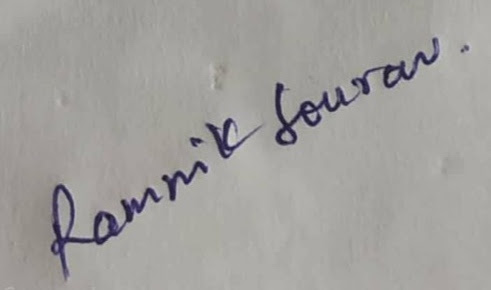 Ramnik Sourav.